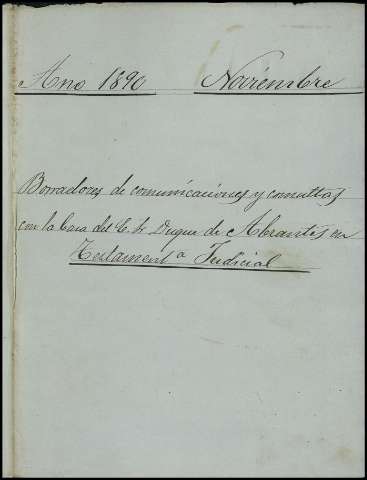 Año 1890 Noviembre
Borradores de comunicaciones y consultas
con la Casa del E. Sr Duque de Abrantes en
Testamentª Judicial